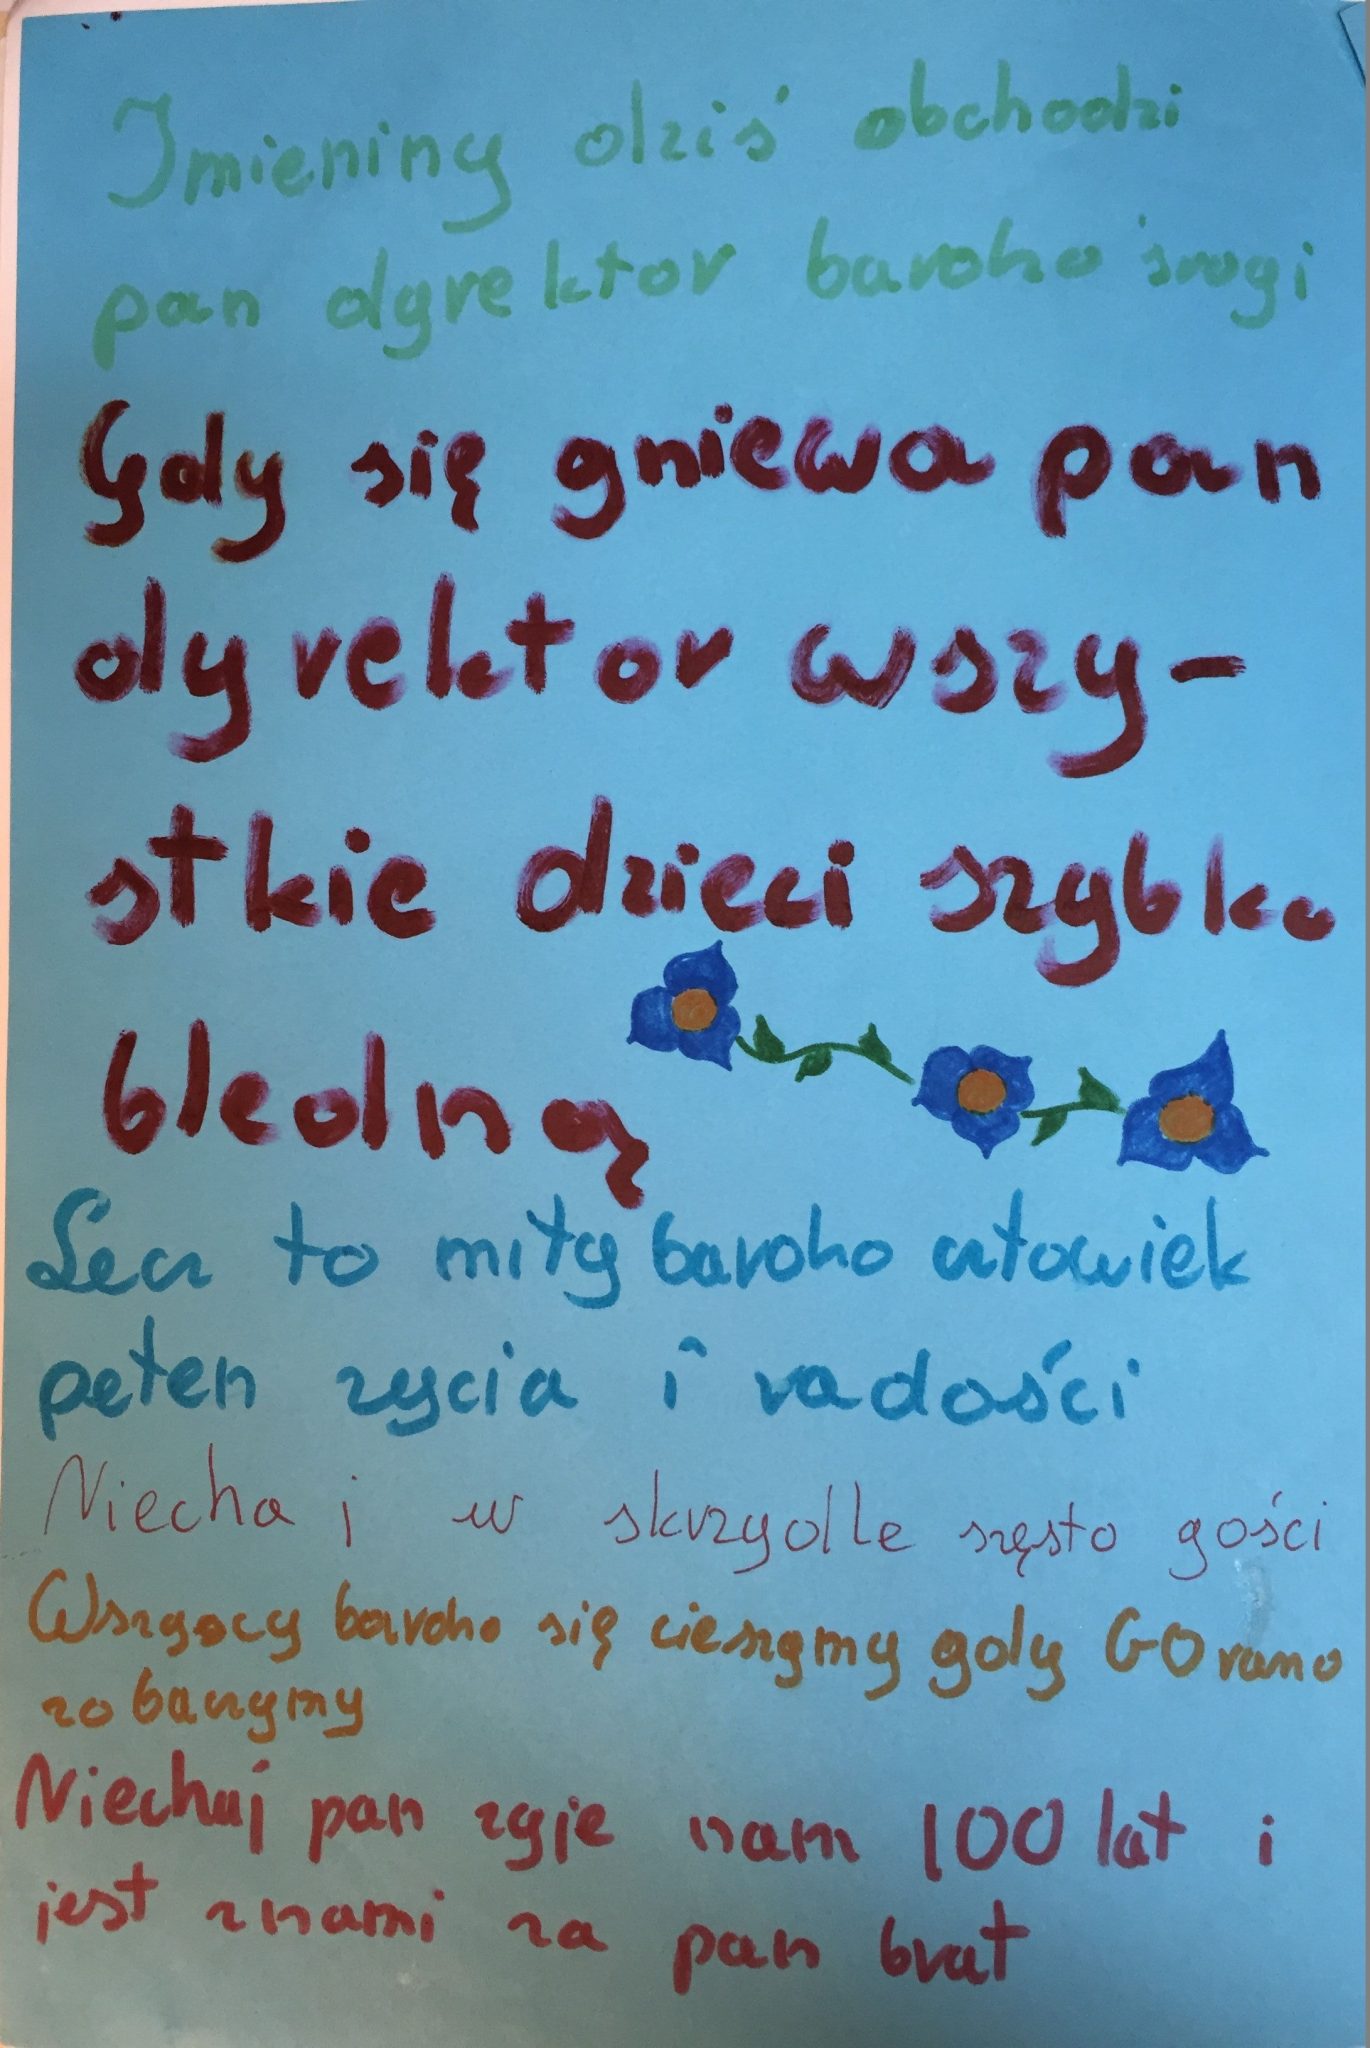 Imieniny dziś obchodzi
pan dyrektor bardzo srogi
Gdy się gniewa pan
dyrektor wszy-
stkie dzieci szybko
bledną
Lecz to miły bardzo człowiek
pełen zycia i radości
Niechaj w skrzydle szęsto gości
Wszyscy bardzo się cieszymy gdy GO rano
zobaczymy
Niechaj pan zyje nam 100 lat i
jest znami za pan brat